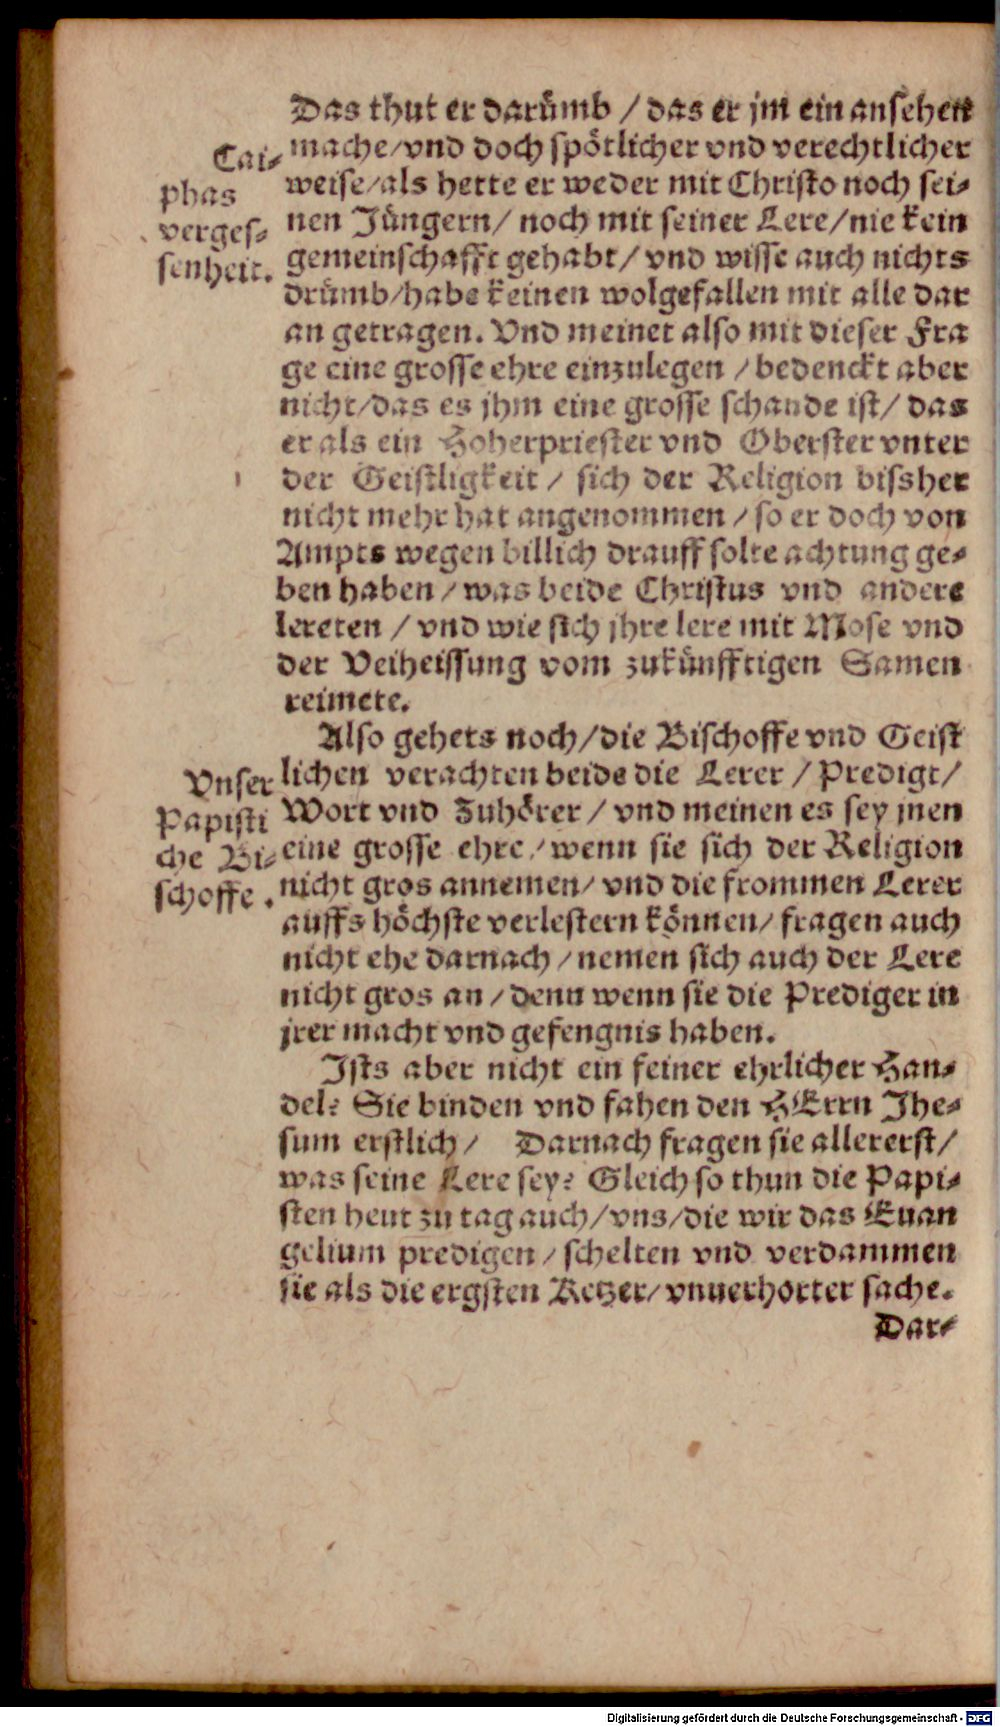 Das thut er darümb / das er jm ein ansehen
mache/vnd doch spötlicher vnd verechtlicher
weise/als hette er weder mit Christo noch sei⸗
nen Jüngern/ noch mit seiner Lere/nie kein
gemeinschafft gehabt/ vnd wisse auch nichts
drümb/habe keinen wolgefallen mit alle dar
an getragen. Vnd meinet also mit dieser Fra
ge eine grosse ehre einzulegen / bedenckt aber
nicht/das es jhm eine grosse schande ist/ das
er als ein Hoherpriester vnd Oberster vnter
der Geistligkeit / sich der Religion bissher
nicht mehr hat angenommen / so er doch von
Ampts wegen billich drauff solte achtung ge⸗
ben haben / was beide Christus vnd andere
lereten / vnd wie sich jhre lere mit Mose vnd
der Veiheissung vom zukünfftigen Samen
reimete.
Cai⸗
phas
verges⸗
senheit.
Also gehets noch/die Bischoffe vnd Geist
lichen verachten beide die Lerer / Predigt/
Wort vnd Zuhörer / vnd meinen es sey jnen
eine grosse ehre / wenn sie sich der Religion
nicht gros annemen/ vnd die frommen Lerer
auffs höchste verlestern können/ fragen auch
nicht ehe darnach / nemen sich auch der Lere
nicht gros an / denn wenn sie die Prediger in
jrer macht vnd gefengnis haben.
Vnser
Papisti
che Bi⸗
schoffe.
Ists aber nicht ein feiner ehrlicher Han⸗
del? Sie binden vnd fahen den HErrn Jhe⸗
sum erstlich / Darnach fragen sie allererst/
was seine Lere sey? Gleich so thun die Papi⸗
sten heut zu tag auch/vns/die wir das Euan
gelium predigen / schelten vnd verdammen
sie als die ergsten Ketzer/ vnuerhorter sache.
Dar⸗
Digitalisierung gefördert durch die Deutsche Forschungsgemeinschaft - DFG